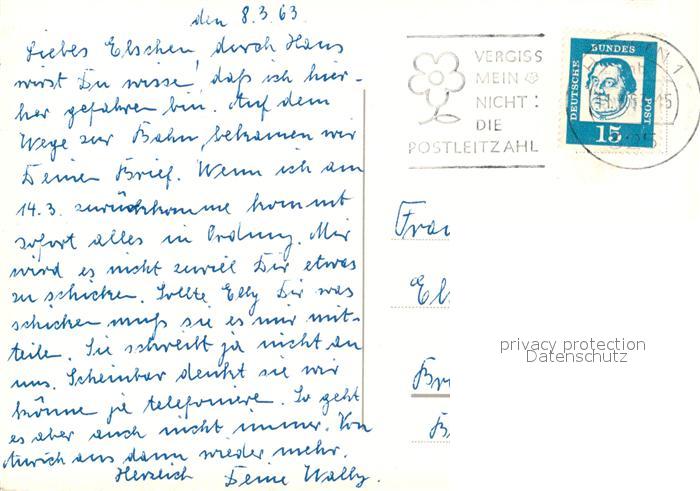 den 8.3.63.
Liebes Elschen, durch Hans
wirst Du wisse, daß ich hier-
her gefahren bin. Auf dem
Wege zur Bahn, bekamen wir
Deinen Brief. Wenn ich am
14.3. zurückkomme kommt
sofort alles in Ordnung. Mir
wird es nicht zuviel Dir etwas
zu schicken. Sollte Elly Dir was
schicken muß sie es mir mit-
teile. Sie schreibt ja nicht an
uns. Scheinbar denkt sie wir
könne ja telefoniere. So geht
es aber auch nicht immer. Von
aus dann wieder mehr.
Herzlich Deine Wally.
VERGISS
MEIN
NICHT:
DIE
POSTLEITZAHL
DEUTSCHE
BUNDES
POST
15
Frau
El
Br
B
privacy protection
Datenschutz